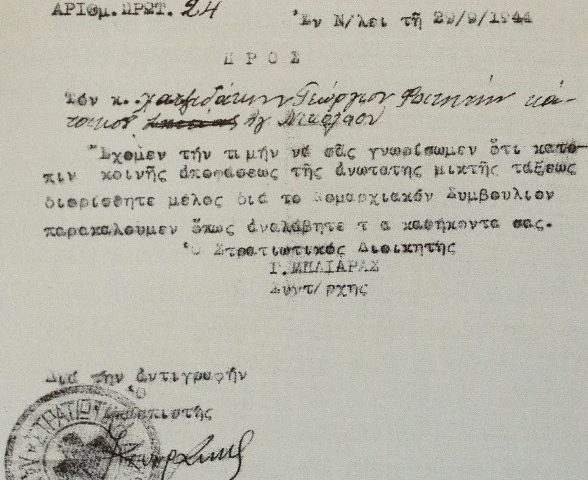 ΑΡΙΘμ.ΠΡΩΤ. 24
Ἐν Ν/λει τῇ 29/9/1944
Π Ρ Ο Σ
Τόν κ. Χατζιδάκην Γεώργιον Φοιτητήν κά-
τοικον Ἁγ Νικολάου
Ἔχομεν τήν τιμήν νά σᾶς γνωρίσωμεν ὅτι κατό-
πιν κοινῆς ἀποφάσεως τῆς ἀνώτατης μικτῆς τάξεως
διορίσθητε μέλος διά το Νομαρχιακόν Συμβουλιον
παρακαλουμεν ὅπως ἀναλάβητε τ α καθήκοντα σας.
Ὁ Στρατιωτικός Διοικητής
Γ.ΜΠΛΙΑΡΑΣ
Συντ/ρχης
Διά την ἀντιγραφήν
Ὁ
ΣΤΡΑΤΙΩΤΙΚ